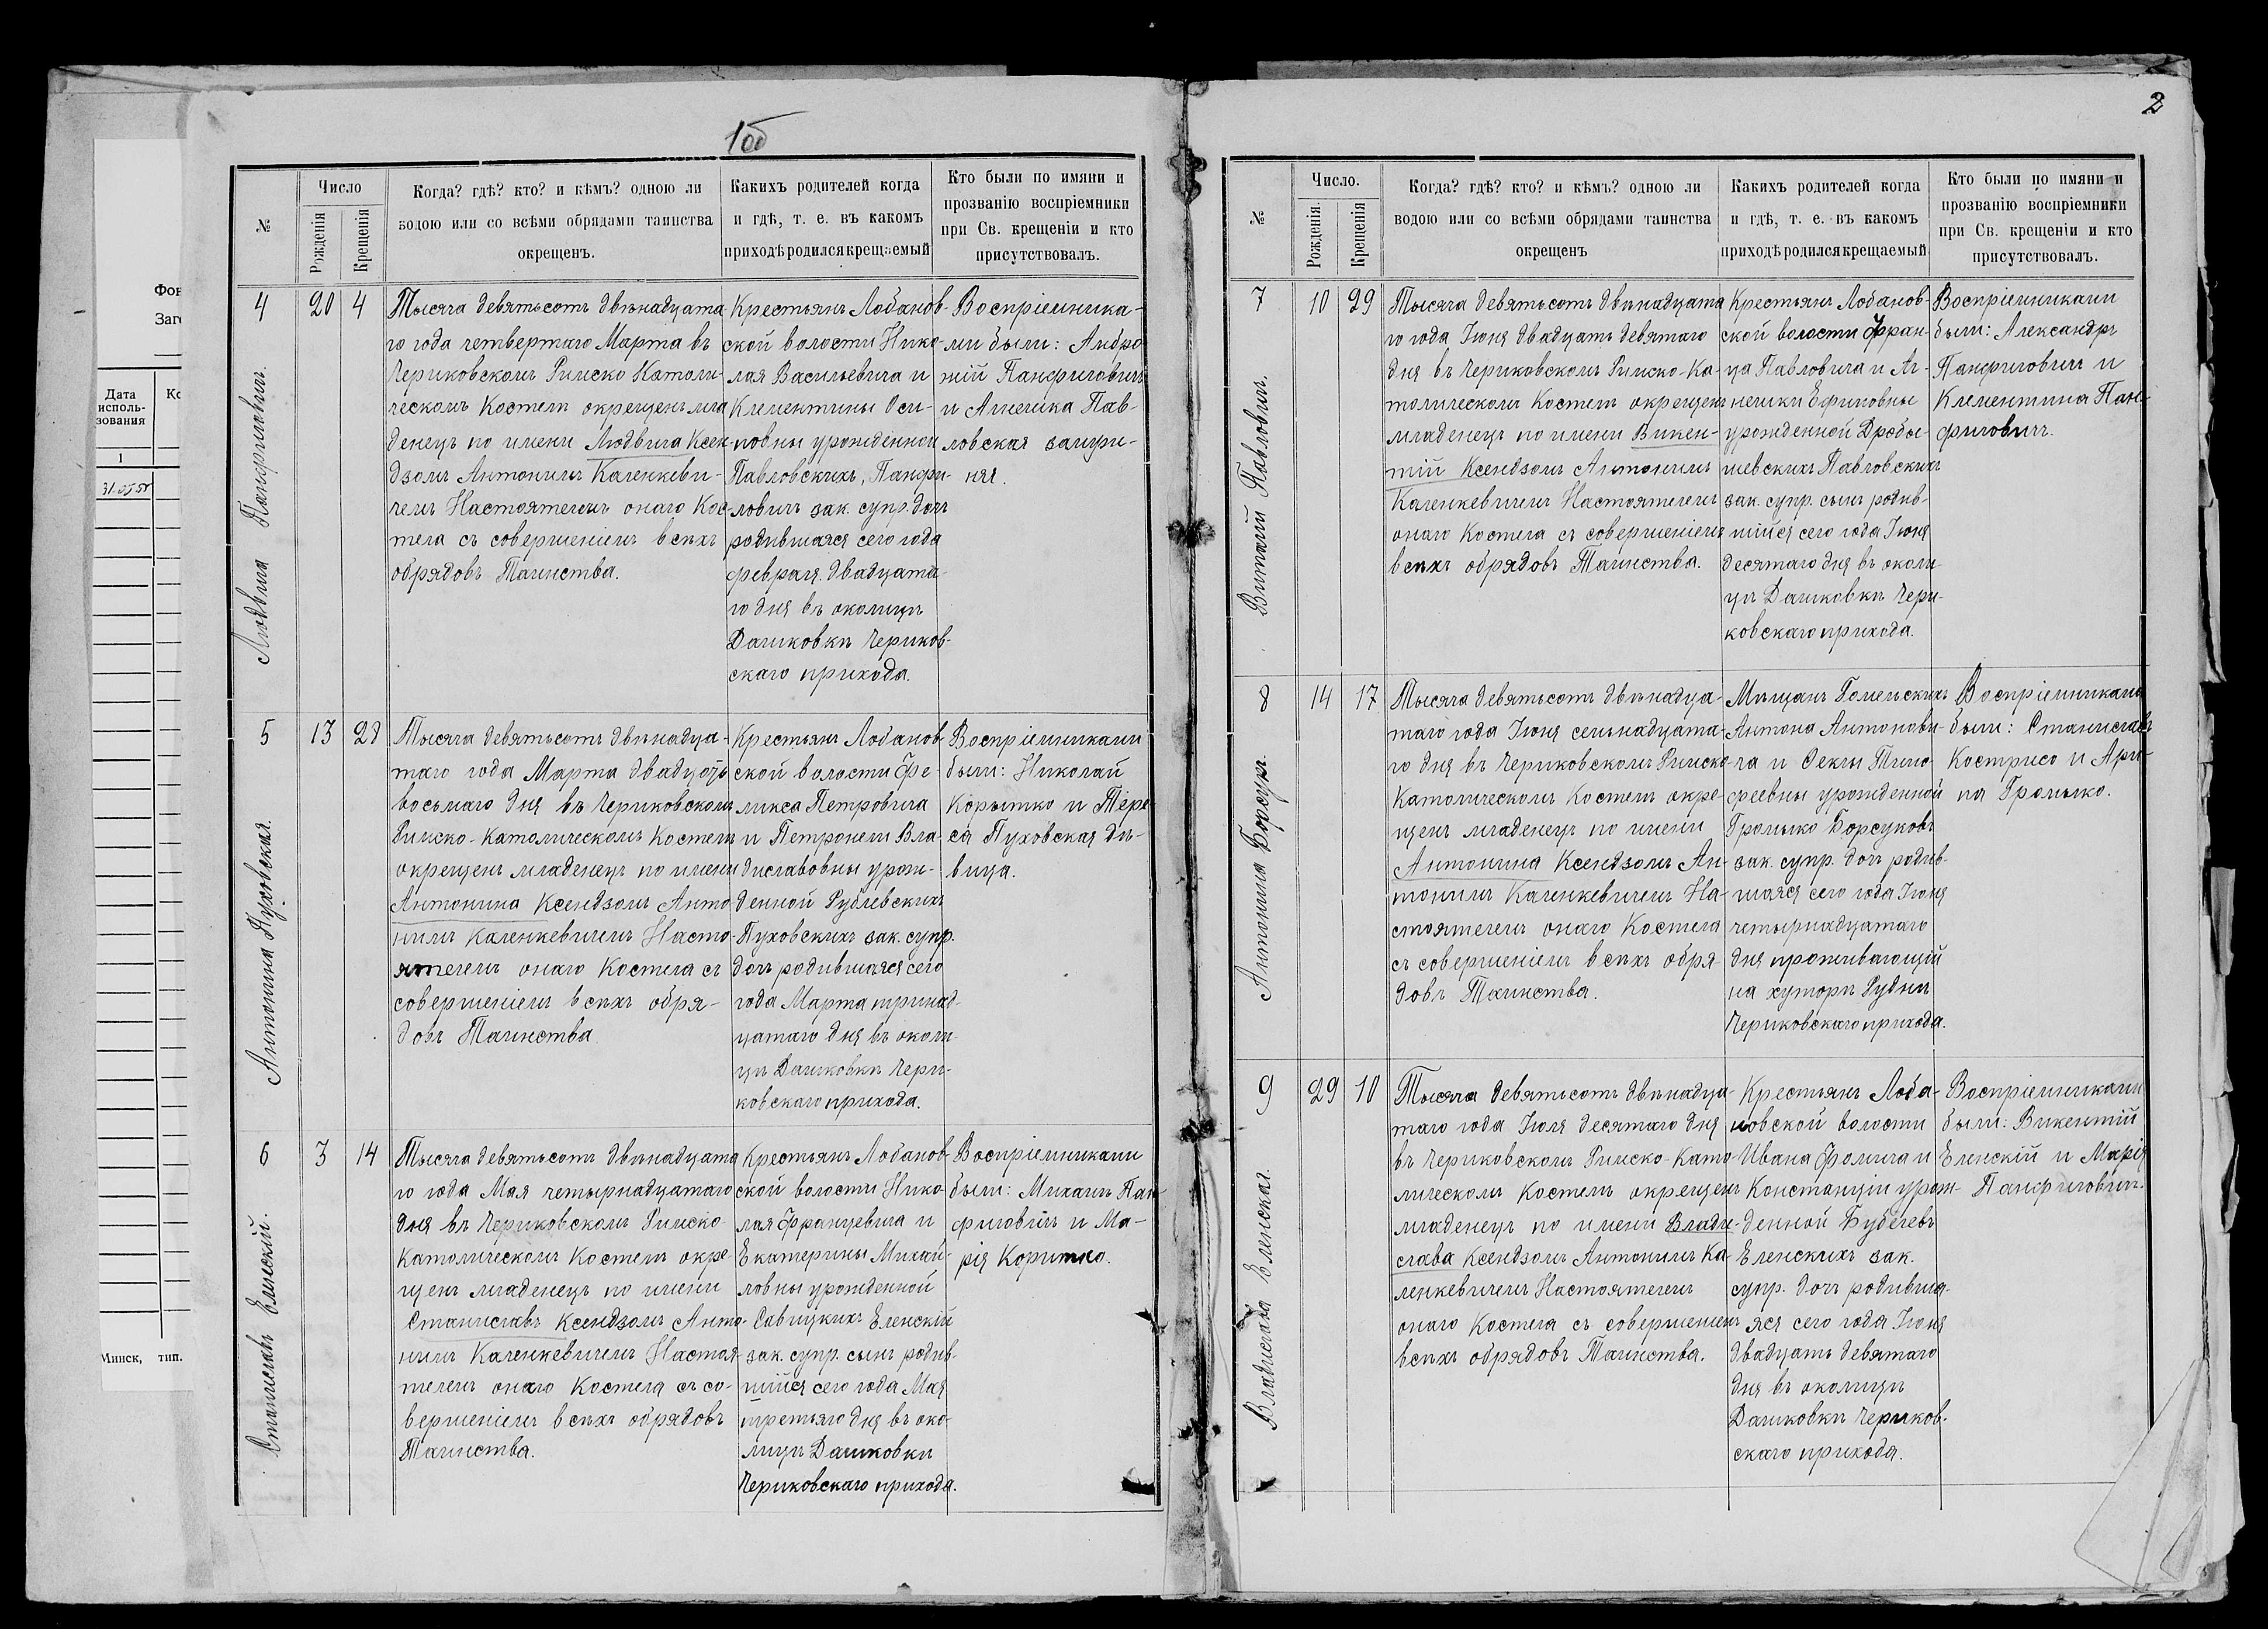 1об
2
Фон
Заго
Дата
исполь-
зования
Ко
1
31.05.51
Минск, тип.
№
Число
Рожденія
Крещенія
Когда? гдѣ? кто? и кѣмъ? одною ли
водою или со всѣми обрядами таинства
окрещенъ.
Какихъ родителей когда
и гдѣ, т. е. въ какомъ
приходѣ родился крещаемый
Кто были по имяни и
прозванію воспріемники
при Св. крещеніи и кто
присутствовалъ.
4
20
4
Людвига Панфиловичъ.
Тысяча девятьсотъ двѣнадцата
го года четвертаго Марта въ
Чериковскомъ Римско Католи-
ческомъ Костелѣ окрещенъ мла
денецъ по имени Людвига Ксен-
дзомъ Антонимъ Каленкеви-
чемъ Настоятелемъ онаго Кос-
тела съ совершеніемъ всѣхъ
обрядовъ Таинства.
Крестьянъ Лобанов-
ской волости Нико-
лая Васильевича и
Клементины Оси-
повны урожденной
Павловскихъ, Панфи-
ловичъ зак. супр. дочь
родившаяся сего года
февраля двадцата-
го дня въ околицѣ
Дашковкѣ Чериков-
скаго прихода.
Воспріемника-
ми были: Амбро
жій Панфиловичъ
и Анелика Пав-
ловская замуж-
няя.
5
13
28
Антонина Пуховская.
Тысяча девятьсотъ двѣнадца-
таго года Марта двадцать
восьмаго дня въ Чериковскомъ
Римско-Католическомъ Костелѣ
окрещенъ младенецъ по имени
Антонина Ксендзомъ Анто
нимъ Каленкевичемъ Насто-
ятелемъ онаго Костела съ
совершеніемъ всѣхъ обря-
довъ Таинства
Крестьянъ Лобанов
ской волости Фе-
ликса Петровича
и Петронели Вла-
диславовны урож-
денной Рублевскихъ
Пуховскихъ зак. супр.
дочь родившаяся сего
года Марта тринад-
цатаго дня въ околи-
цѣ Дашковкѣ Чери-
ковскаго прихода.
Воспріемниками
были: Николай
Корытко и Тере-
са Пуховская дѣ-
вица.
6
3
14
Станиславъ Еленскій.
Тысяча девятьсотъ двѣнадцата
го года Мая четырнадцатаго
дня въ Чериковскомъ Римско
Католическомъ Костелѣ окре-
щенъ младенецъ по имени
Станиславъ Ксендзомъ Анто-
нимъ Каленкевичемъ Настоя-
телемъ онаго Костела съ со-
вершеніемъ всѣхъ обрядовъ
Таинства.
Крестьянъ Лобанов-
ской волости Нико
лая Францевича и
Екатерины Михай-
ловны урожденной
Савицкихъ Еленскій
зак. супр. сынъ родив-
шійся сего года Мая
третьяго дня въ око-
лицѣ Дашковкѣ
Чериковскаго прихода.
Воспріемниками
были: Михаилъ Пан-
филовичъ и Ма-
рія Коритко.
№
Число.
Рожденія.
Крещенія
Когда? гдѣ? кто? и кѣмъ? одною ли
водою или со всѣми обрядами таинства
окрещенъ
Какихъ родителей когда
и гдѣ, т. е. въ какомъ
приходѣ родился крещаемый
Кто были по имяни и
прозванію воспріемники
при Св. крещеніи и кто
присутствовалъ.
7
10
29
Павловичъ.
Тысяча девятьсотъ двѣнадцата
го года Іюня двадцать девятаго
дня въ Чериковскомъ Римско-Ка-
толическомъ Костелѣ окрещенъ
младенецъ по имени Викен-
тій Ксендзомъ Антонимъ
Каленкевичемъ Настоятелемъ
онаго Костела съ совершеніемъ
всѣхъ обрядовъ Таинства.
Крестьянъ Лобанов-
ской волости Фран-
ца Павловича и Аг-
нешки Ефимовны
урожденной Дробы-
шевскихъ Павловскихъ
зак. супр. сынъ родив-
шійся сего года Іюня
десятаго дня въ околи-
цѣ Дашковкѣ Чери-
ковскаго прихода.
Воспріемниками
были: Александръ
Панфиловичъ и
Клементина Пан-
филовичъ.
8
14
17
Антонина Борсукъ.
Тысяча девятьсотъ двѣнадца-
таго года Іюня семнадцата-
го дня въ Чериковскомъ Римско-
Католическомъ Костелѣ окре-
щенъ младенецъ по имени
Антонина Ксендзомъ Ан-
тонимъ Каленкевичемъ На-
стоятелемъ онаго Костела
съ совершеніемъ всѣхъ обря-
довъ Таинства.
Мѣщанъ Гомельскихъ
Антона Антонови-
ча и Феклы Тимо-
феевны урожденной
Громыко Борсуковъ
зак. супр. дочь родив-
шаяся сего года Іюня
четырнадцатаго
дня проживающій
на хуторѣ Рудни
Чериковскаго прихода.
Воспріемниками
были: Станиславъ
Кострисо и Ари-
на Громыко.
9
29
10
Владислава Еленская.
Тысяча девятьсотъ двѣнадца-
таго года Іюля десятаго дня
въ Чериковскомъ Римско-Като-
лическомъ Костелѣ окрещенъ
младенецъ по имени Влади-
слава Ксендзомъ Антонимъ Ка-
ленкевичемъ Настоятелемъ
онаго Костела съ совершеніемъ
всѣхъ обрядовъ Таинства.
Крестьянъ Лоба-
новской волости
Ивана Фомича и
Констанціи урож-
денной Бубелевъ
Еленскихъ зак.
супр. дочь родивша-
яся сего года Іюня
двадцать девятаго
дня въ околицѣ
Дашковкѣ Чериков-
скаго прихода.
Воспріемниками
были: Викентій
Еленскій и Марія
Панфиловичъ.